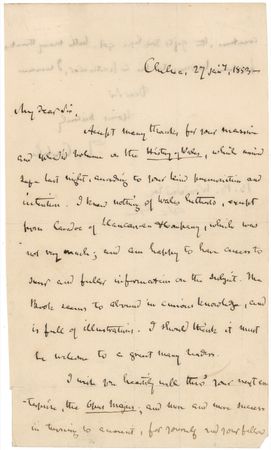 Chelsea, 27 jany, 1853 —
My dear Sir,
Accept many thanks for your massive
and splendid volume on the History of Wales, which arrived
safe last night, according to your kind premonition and
intention. I know nothing of Wales hitherto, except
from Caradoc of Llancarvan & Company, which was
not very much; and am happy to have access to
surer and fuller information on the subject. The
Book seems to abound in curious knowledge, and
is full of illustrations. I should think it must
be welcome to a great many readers.
I wish you heartily well thro' your next en-
-terprise, the Opus Majus, and more and more success
in turning to account, for yourself and your fellow